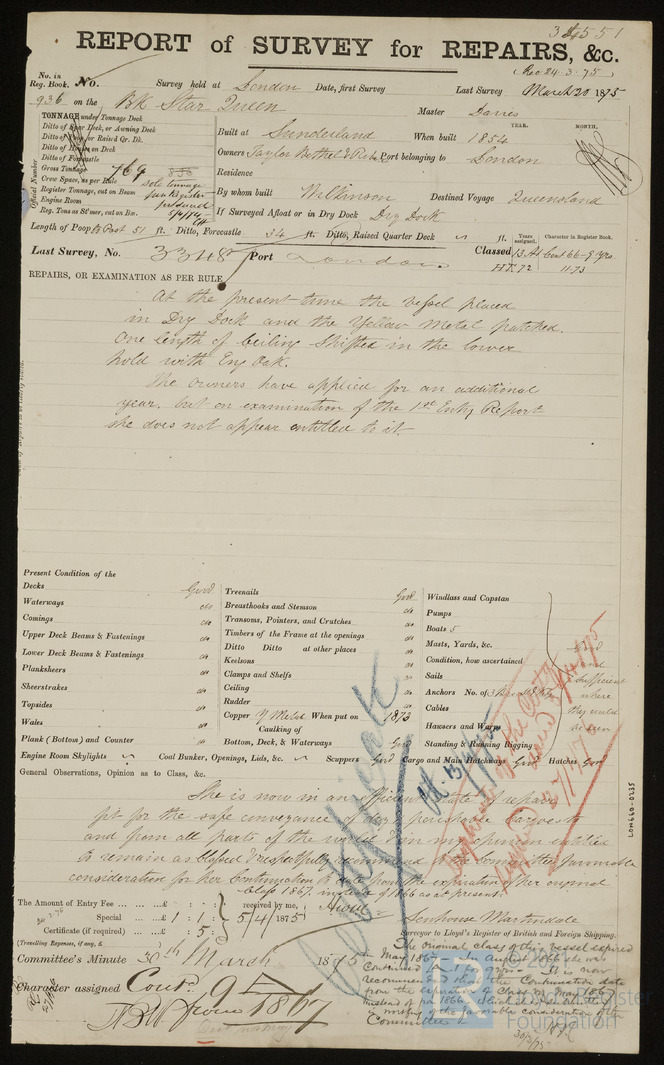 REPORT of SURVEY for REPAIRS, &c.
(Rec 24.3.75)
No. in Reg. Book. No. Survey held at London Date, first Survey Last Survey March 20 1875
936 on the Bk Star Queen
Master Davies
TONNAGE under Tonnage Deck
Ditto of Spar Deck, or Awning Deck
Ditto of Poop, or Raised Qr. Dk.
Ditto of House on Deck
Ditto of Forecastle
Gross Tonnage 769
Crew Space, as per Rule
Register Tonnage, cut on Beam
Engine Room
Reg. Tons as St'mer, cut on Bm.
Official Number
YEAR. MONTH.
Built at Sunderland When built 1854
Owners Taylor Bethell & Port belonging to London
Residence
By whom built Wilkinson Destined Voyage Queensland
If Surveyed Afloat or in Dry Dock Dry Dock
Length of Poop 51 ft. Ditto, Forecastle 34 ft. Ditto, Raised Quarter Deck ft.
Years assigned. Character in Register Book.
Last Survey, No. 3348 Port London Classed 13 A1 Cont 66-9 Yrs
HT. 72 11.73
REPAIRS, OR EXAMINATION AS PER RULE
At the present time the vessel placed
in Dry Dock and the Yellow Metal patched.
One length of Ceiling shifted in the lower
hold with Eng Oak.
The owners have applied for an additional
year, but on examination of the 1st Entry Report
she does not appear entitled to it.
Present Condition of the
Decks Good
Waterways do
Comings do
Upper Deck Beams & Fastenings do
Lower Deck Beams & Fastenings do
Planksheers do
Sheerstrakes do
Topsides do
Wales do
Plank (Bottom) and Counter do
Treenails Good
Breasthooks and Stemson do
Transoms, Pointers, and Crutches do
Timbers of the Frame at the openings do
Ditto Ditto at other places do
Keelsons do
Clamps and Shelfs do
Ceiling do
Rudder do
Copper Y Metal When put on 1873
Caulking of
Bottom, Deck, & Waterways Good
Windlass and Capstan
Pumps
Boats 5
Masts, Yards, &c.
Condition, how ascertained
Sails
Anchors No. of
Cables
Hawsers and Warps
Standing & Running Rigging
Good
and
sufficient
where
they could
be seen
Engine Room Skylights Coal Bunker, Openings, Lids, &c. Scuppers Good Cargo and Main Hatchways Good Hatches Good
General Observations, Opinion as to Class, &c.
She is now in an efficient state of repair
fit for the safe conveyance of dry & perishable cargoes to
and from all parts of the world & in my opinion entitled
to remain as Classed & respectfully recommend to the Committee favorable
consideration for her Continuation to date from the expiration of her original
Class 1867, instead of 1866 as at present.
The Amount of Entry Fee ... £ : : received by me,
Special ... £ 1 : 1 : 5/4/1875
Certificate (if required) ... : 5 :
(Travelling Expenses, if any, £
Senhouse Martindale
Surveyor to Lloyd's Register of British and Foreign Shipping.
Committee's Minute 30th March 1875
Character assigned Cont. 9
from 1867
Certificate
The original class of this vessel expired
in May 1867. In August 1866 she was
Continued A1 for 9 yrs. It is now
recommended that the Continuation date
from the expiration of Class in May 1867
instead of from 1866, which
is worthy of the favorable consideration of the
Committee
30/3/75
LON660-0235
Lloyd's Register
Foundation